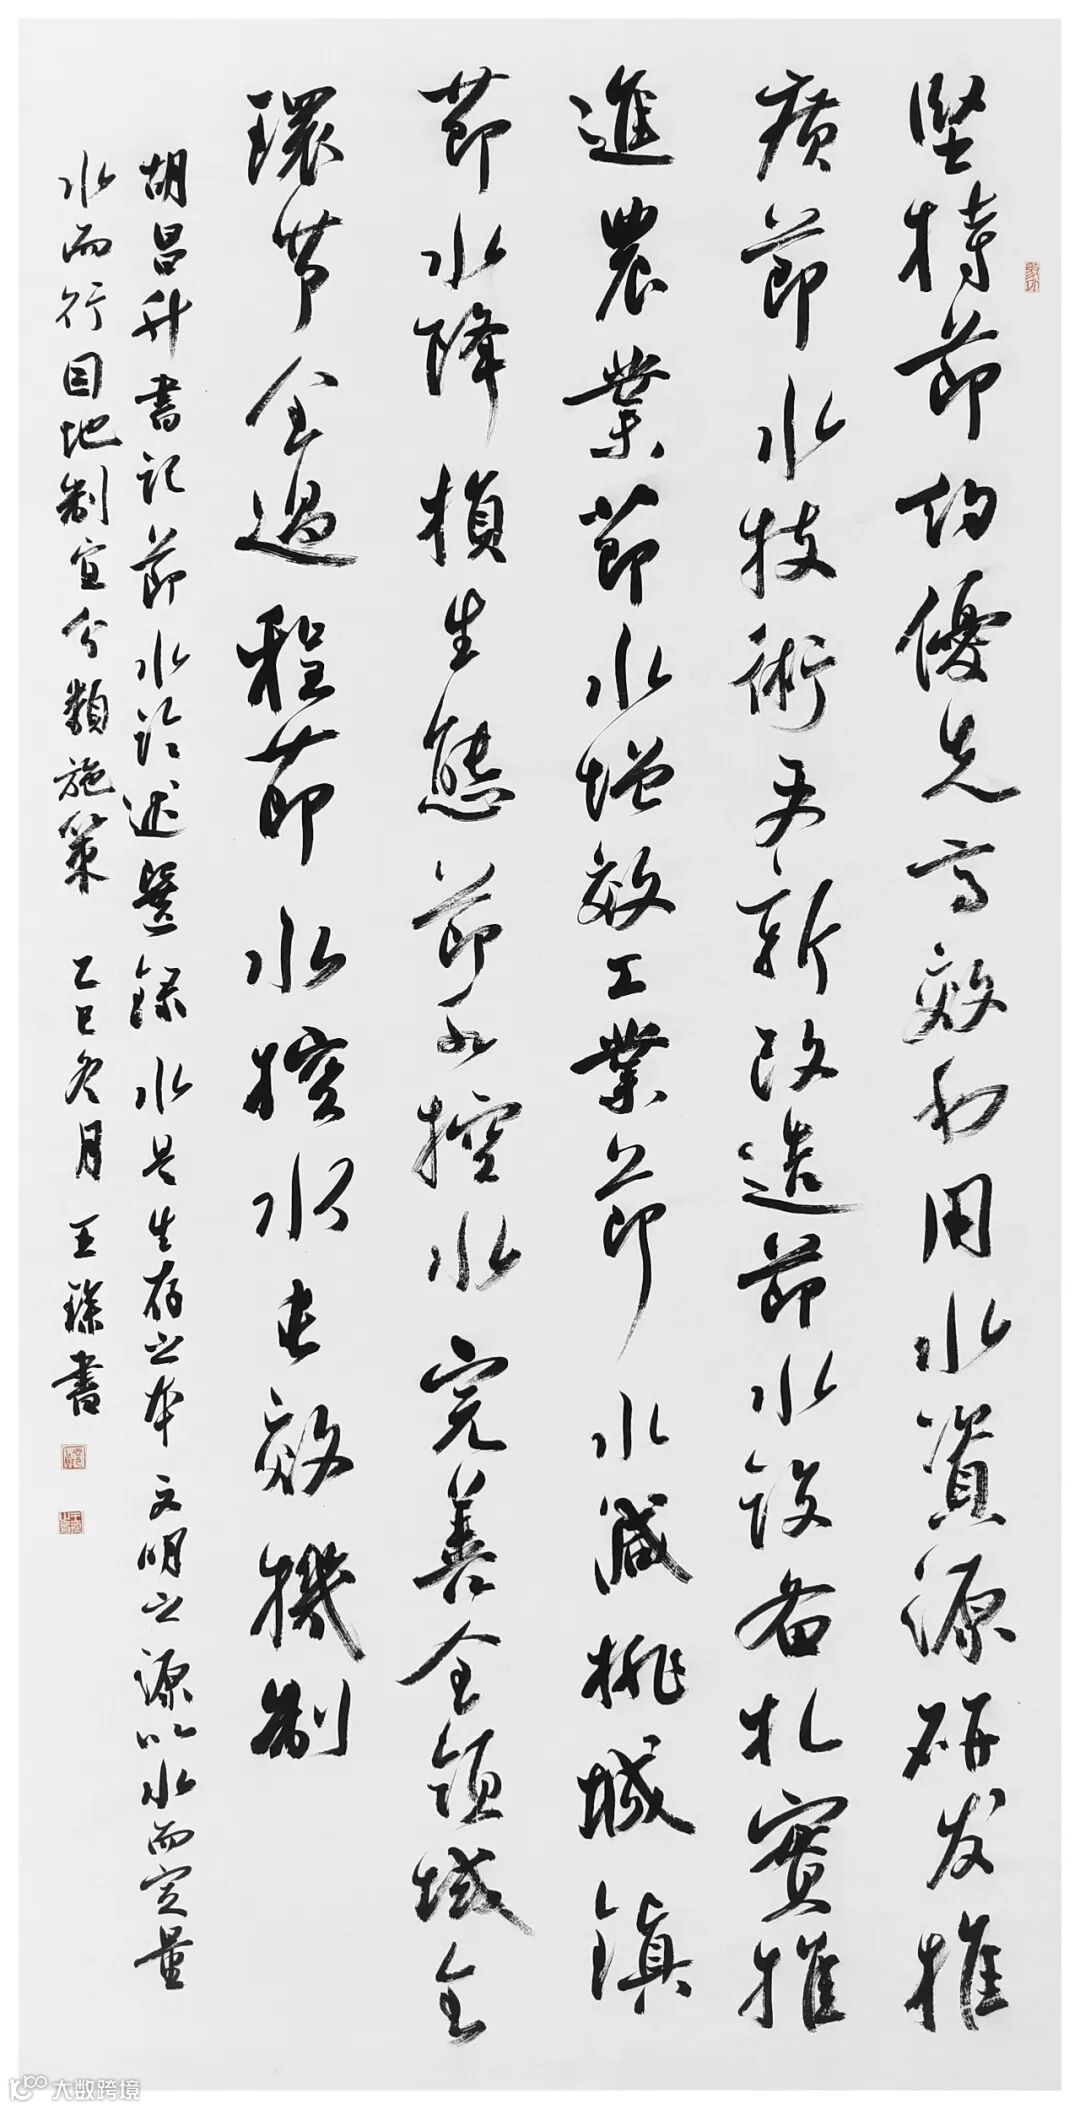 堅持節约優先高效利用水資源研发推
廣節水技術更新改造節水设备扎實推
進農業節水增效工業節水减排城鎮
節水降損生態節水控水完善全領域全
環节全過程節水控水长效機制
胡昌升書记節水论述選録 水是生存之本 文明之源以水而定量
水而行因地制宜分類施策 乙巳冬月 王臻書
大数跨境